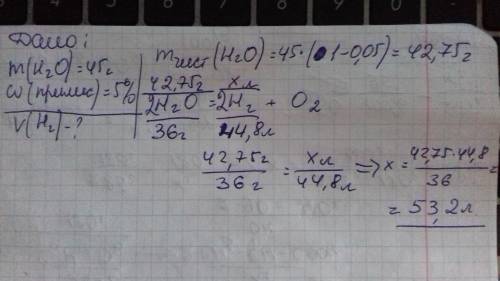 Дано:
m(H₂O)=45г
ω(примес)=5%
V(H₂)-?
mчист(H₂O)=45·(1-0,05)=42,75г
42,75г хл
2H₂O = 2H₂ + O₂
36г 44,8л
42,75г/36г = хл/44,8л => x = 42,75·44,8/36 =
= 53,2л